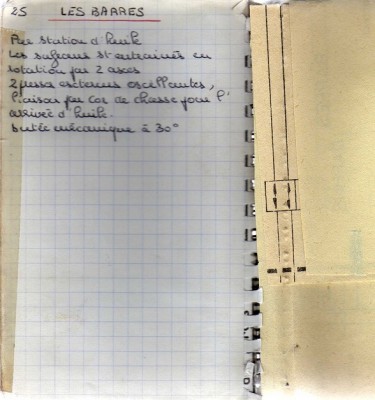 25 LES BARRES
Par station d'huile
Les safrans st entrainés en
rotation par 2 axes
2 presses externes oscillantes,
Liaison par Cor de chasse pour l'
arrivée d'huile.
butée mécanique à 30°